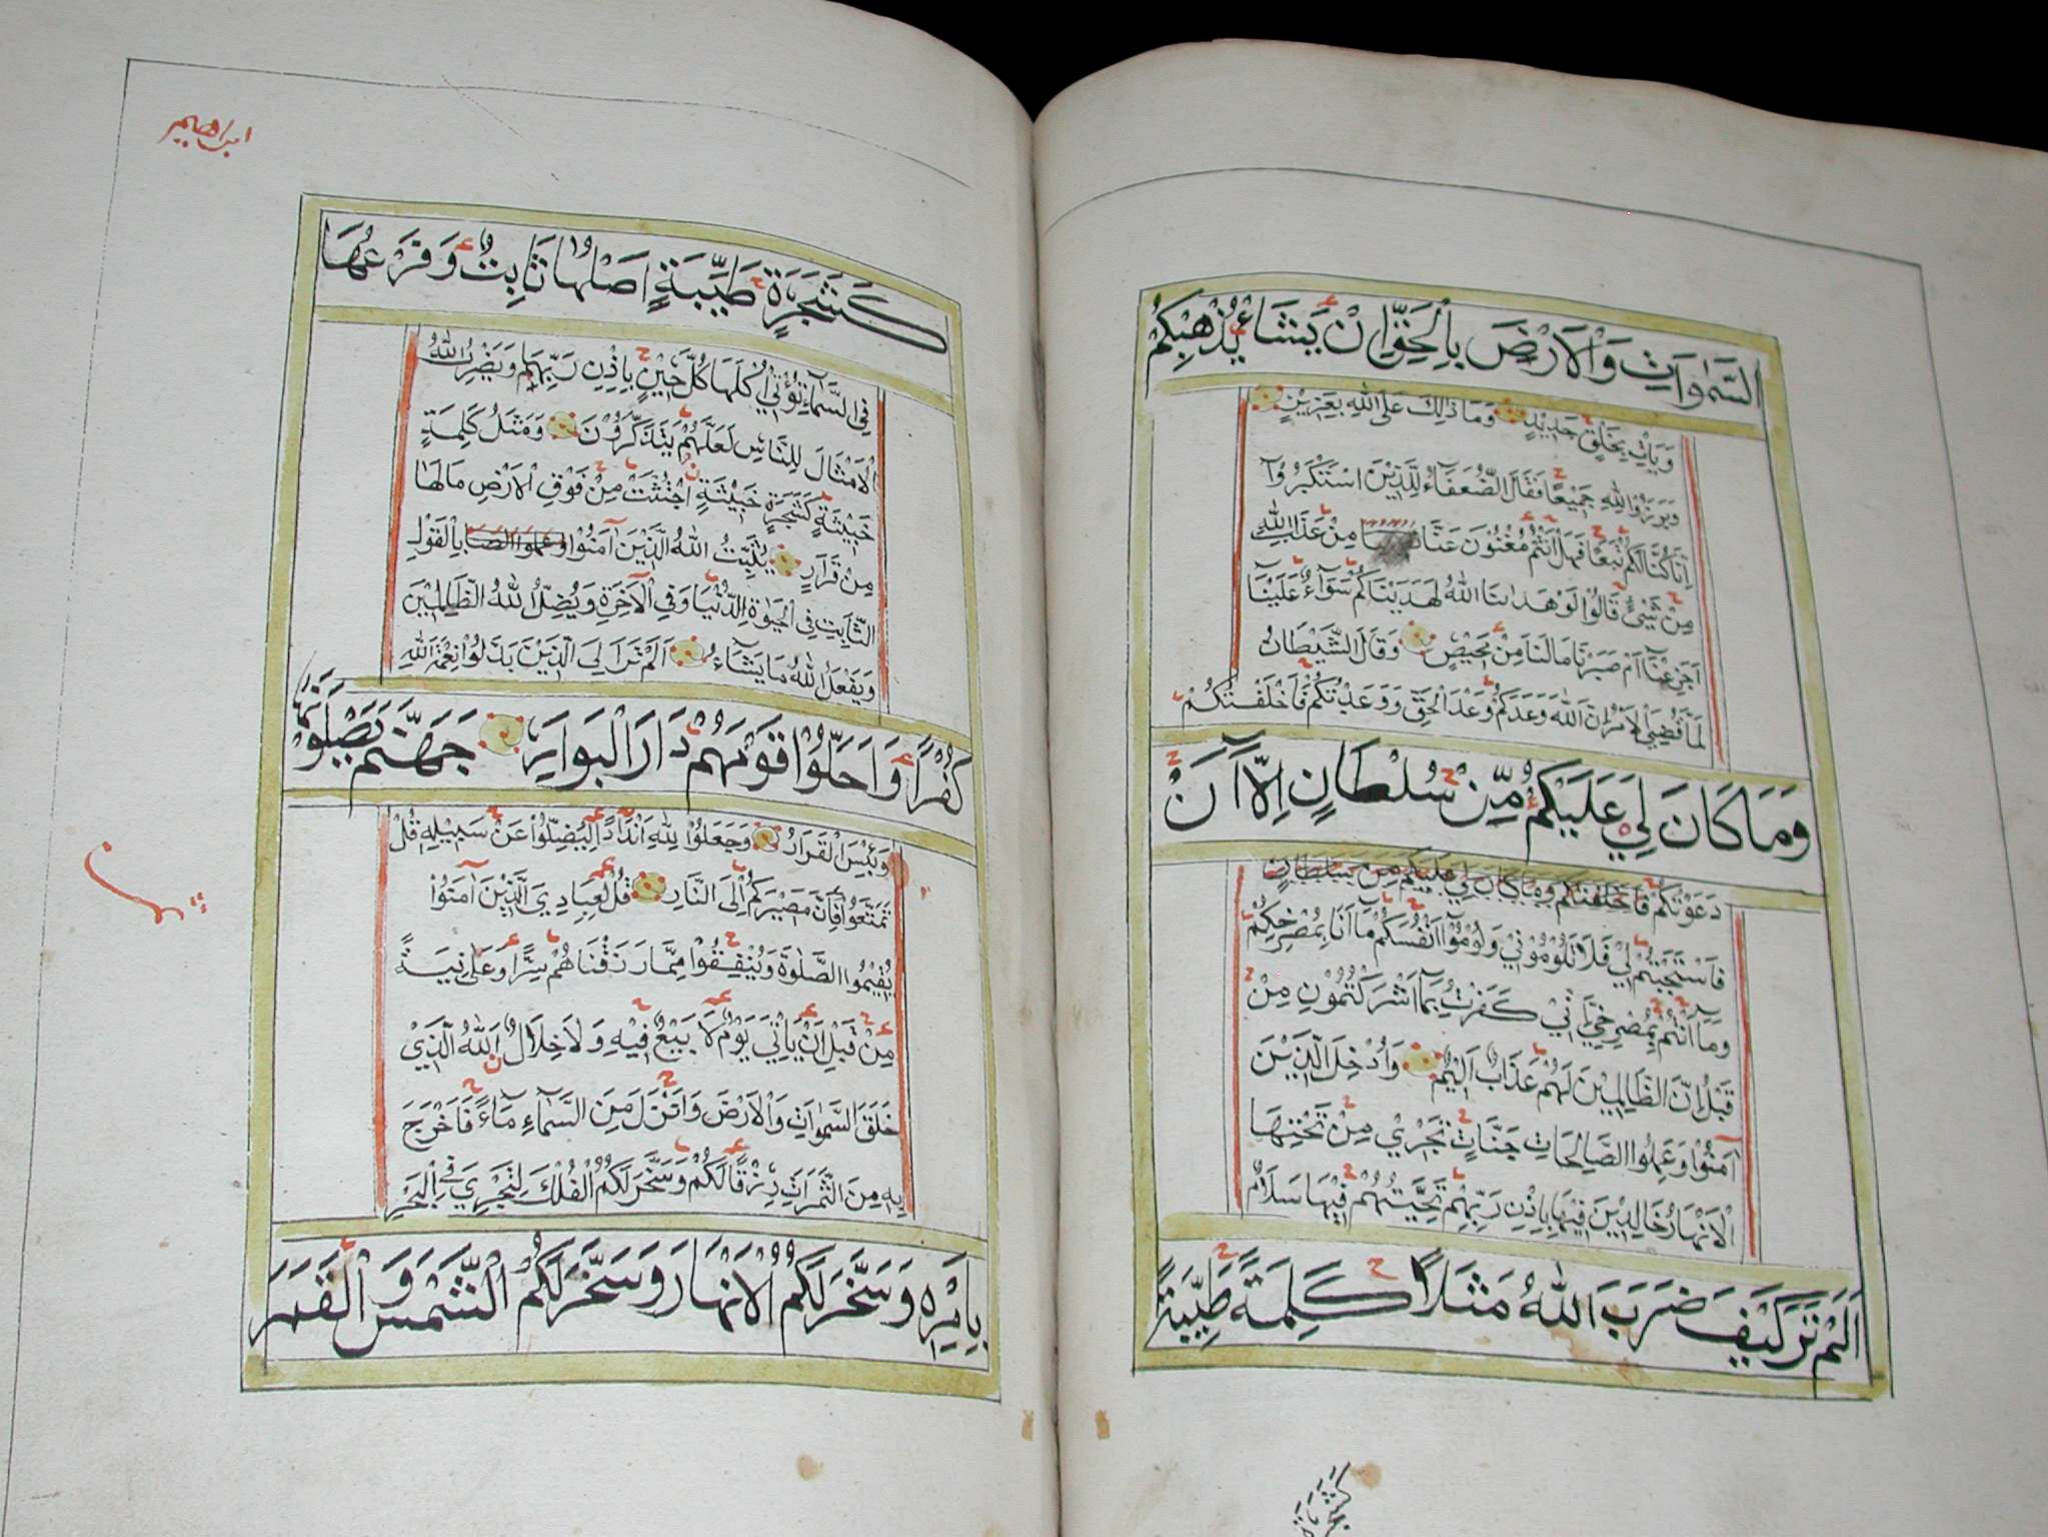 السَّمٰوَاتِ وَالْاَرْضَ بِالْحَقِّ اِنْ يَشَاءْ يُذْهِبْكُمْ
وَيَاْتِ بِخَلْقٍ جَدِيْدٍ وَمَا ذَالِكَ عَلَى اللّٰهِ بِعَزِيْزٍ
وَبَرَزُوْا لِلّٰهِ جَمِيْعًا فَقَالَ الضُّعَفَاءُ لِلَّذِيْنَ اسْتَكْبَرُوْا
اِنَّا كُنَّا لَكُمْ تَبَعًا فَهَلْ اَنْتُمْ مُغْنُوْنَ عَنَّا مِنْ عَذَابِ اللّٰهِ
مِنْ شَيْئٍ قَالُوْا لَوْ هَدَانَا اللّٰهُ لَهَدَيْنَاكُمْ سَوَاءٌ عَلَيْنَا
اَجَزِعْنَا اَمْ صَبَرْنَا مَا لَنَا مِنْ مَحِيْصٍ وَقَالَ الشَّيْطَانُ
لَمَّا قُضِيَ الْاَمْرُ اِنَّ اللّٰهَ وَعَدَكُمْ وَعْدَ الْحَقِّ وَوَعَدْتُكُمْ فَاَخْلَفْتُكُمْ
وَمَا كَانَ لِيَ عَلَيْكُمْ مِّنْ سُلْطَانٍ اِلَّا اَنْ
دَعَوْتُكُمْ فَاَخْلَفْتُكُمْ وَمَا كَانَ لِيَ عَلَيْكُمْ مِنْ سُلْطَانٍ
فَاسْتَجَبْتُمْ لِيْ فَلَا تَلُوْمُوْنِيْ وَلُوْمُوْا اَنْفُسَكُمْ مَا اَنَا بِمُصْرِخِكُمْ
وَمَا اَنْتُمْ بِمُصْرِخِيَّ اِنِّيْ كَفَرْتُ بِمَا اَشْرَكْتُمُوْنِ مِنْ
قَبْلُ اِنَّ الظَّالِمِيْنَ لَهُمْ عَذَابٌ اَلِيْمٌ وَاُدْخِلَ الَّذِيْنَ
اٰمَنُوْا وَعَمِلُوا الصَّالِحَاتِ جَنَّاتٍ تَجْرِيْ مِنْ تَحْتِهَا
الْاَنْهَارُ خَالِدِيْنَ فِيْهَا بِاِذْنِ رَبِّهِمْ تَحِيَّتُهُمْ فِيْهَا سَلَامٌ
اَلَمْ تَرَ كَيْفَ ضَرَبَ اللّٰهُ مَثَلًا كَلِمَةً طَيِّبَةً
كَشَجَرَةٍ
ابراهيم
كَشَجَرَةٍ طَيِّبَةٍ اَصْلُهَا ثَابِتٌ وَفَرْعُهَا
فِي السَّمَاءِ تُؤْتِيْ اُكُلَهَا كُلَّ حِيْنٍ بِاِذْنِ رَبِّهَا وَيَضْرِبُ اللّٰهُ
الْاَمْثَالَ لِلنَّاسِ لَعَلَّهُمْ يَتَذَكَّرُوْنَ وَمَثَلُ كَلِمَةٍ
خَبِيْثَةٍ كَشَجَرَةٍ خَبِيْثَةٍ اجْتُثَّتْ مِنْ فَوْقِ الْاَرْضِ مَا لَهَا
مِنْ قَرَارٍ يُثَبِّتُ اللّٰهُ الَّذِيْنَ اٰمَنُوْا وعملوا الصا بِالْقَوْلِ
الثَّابِتِ فِي الْحَيٰوةِ الدُّنْيَا وَفِي الْاٰخِرَةِ وَيُضِلُّ اللّٰهُ الظَّالِمِيْنَ
وَيَفْعَلُ اللّٰهُ مَا يَشَاءُ اَلَمْ تَرَ اِلَى الَّذِيْنَ بَدَّلُوْا نِعْمَةَ اللّٰهِ
كُفْرًا وَاَحَلُّوْا قَوْمَهُمْ دَارَ الْبَوَارِ جَهَنَّمَ يَصْلَوْنَهَا
وَبِئْسَ الْقَرَارُ وَجَعَلُوْا لِلّٰهِ اَنْدَادًا لِيُضِلُّوْا عَنْ سَبِيْلِهِ قُلْ
تَمَتَّعُوْا فَاِنَّ مَصِيْرَكُمْ اِلَى النَّارِ قُلْ لِعِبَادِيَ الَّذِيْنَ اٰمَنُوْا
يُقِيْمُوا الصَّلٰوةَ وَيُنْفِقُوْا مِمَّا رَزَقْنَاهُمْ سِرًّا وَعَلَانِيَةً
مِنْ قَبْلِ اَنْ يَاْتِيَ يَوْمٌ لَا بَيْعٌ فِيْهِ وَلَا خِلَالٌ اَللّٰهُ الَّذِيْ
خَلَقَ السَّمٰوَاتِ وَالْاَرْضَ وَاَنْزَلَ مِنَ السَّمَاءِ مَاءً فَاَخْرَجَ
بِهِ مِنَ الثَّمَرَاتِ رِزْقًا لَكُمْ وَسَخَّرَ لَكُمُ الْفُلْكَ لِتَجْرِيَ فِي الْبَحْرِ
بِاَمْرِهِ وَسَخَّرَ لَكُمُ الْاَنْهَارَ وَسَخَّرَ لَكُمُ الشَّمْسَ وَالْقَمَرَ